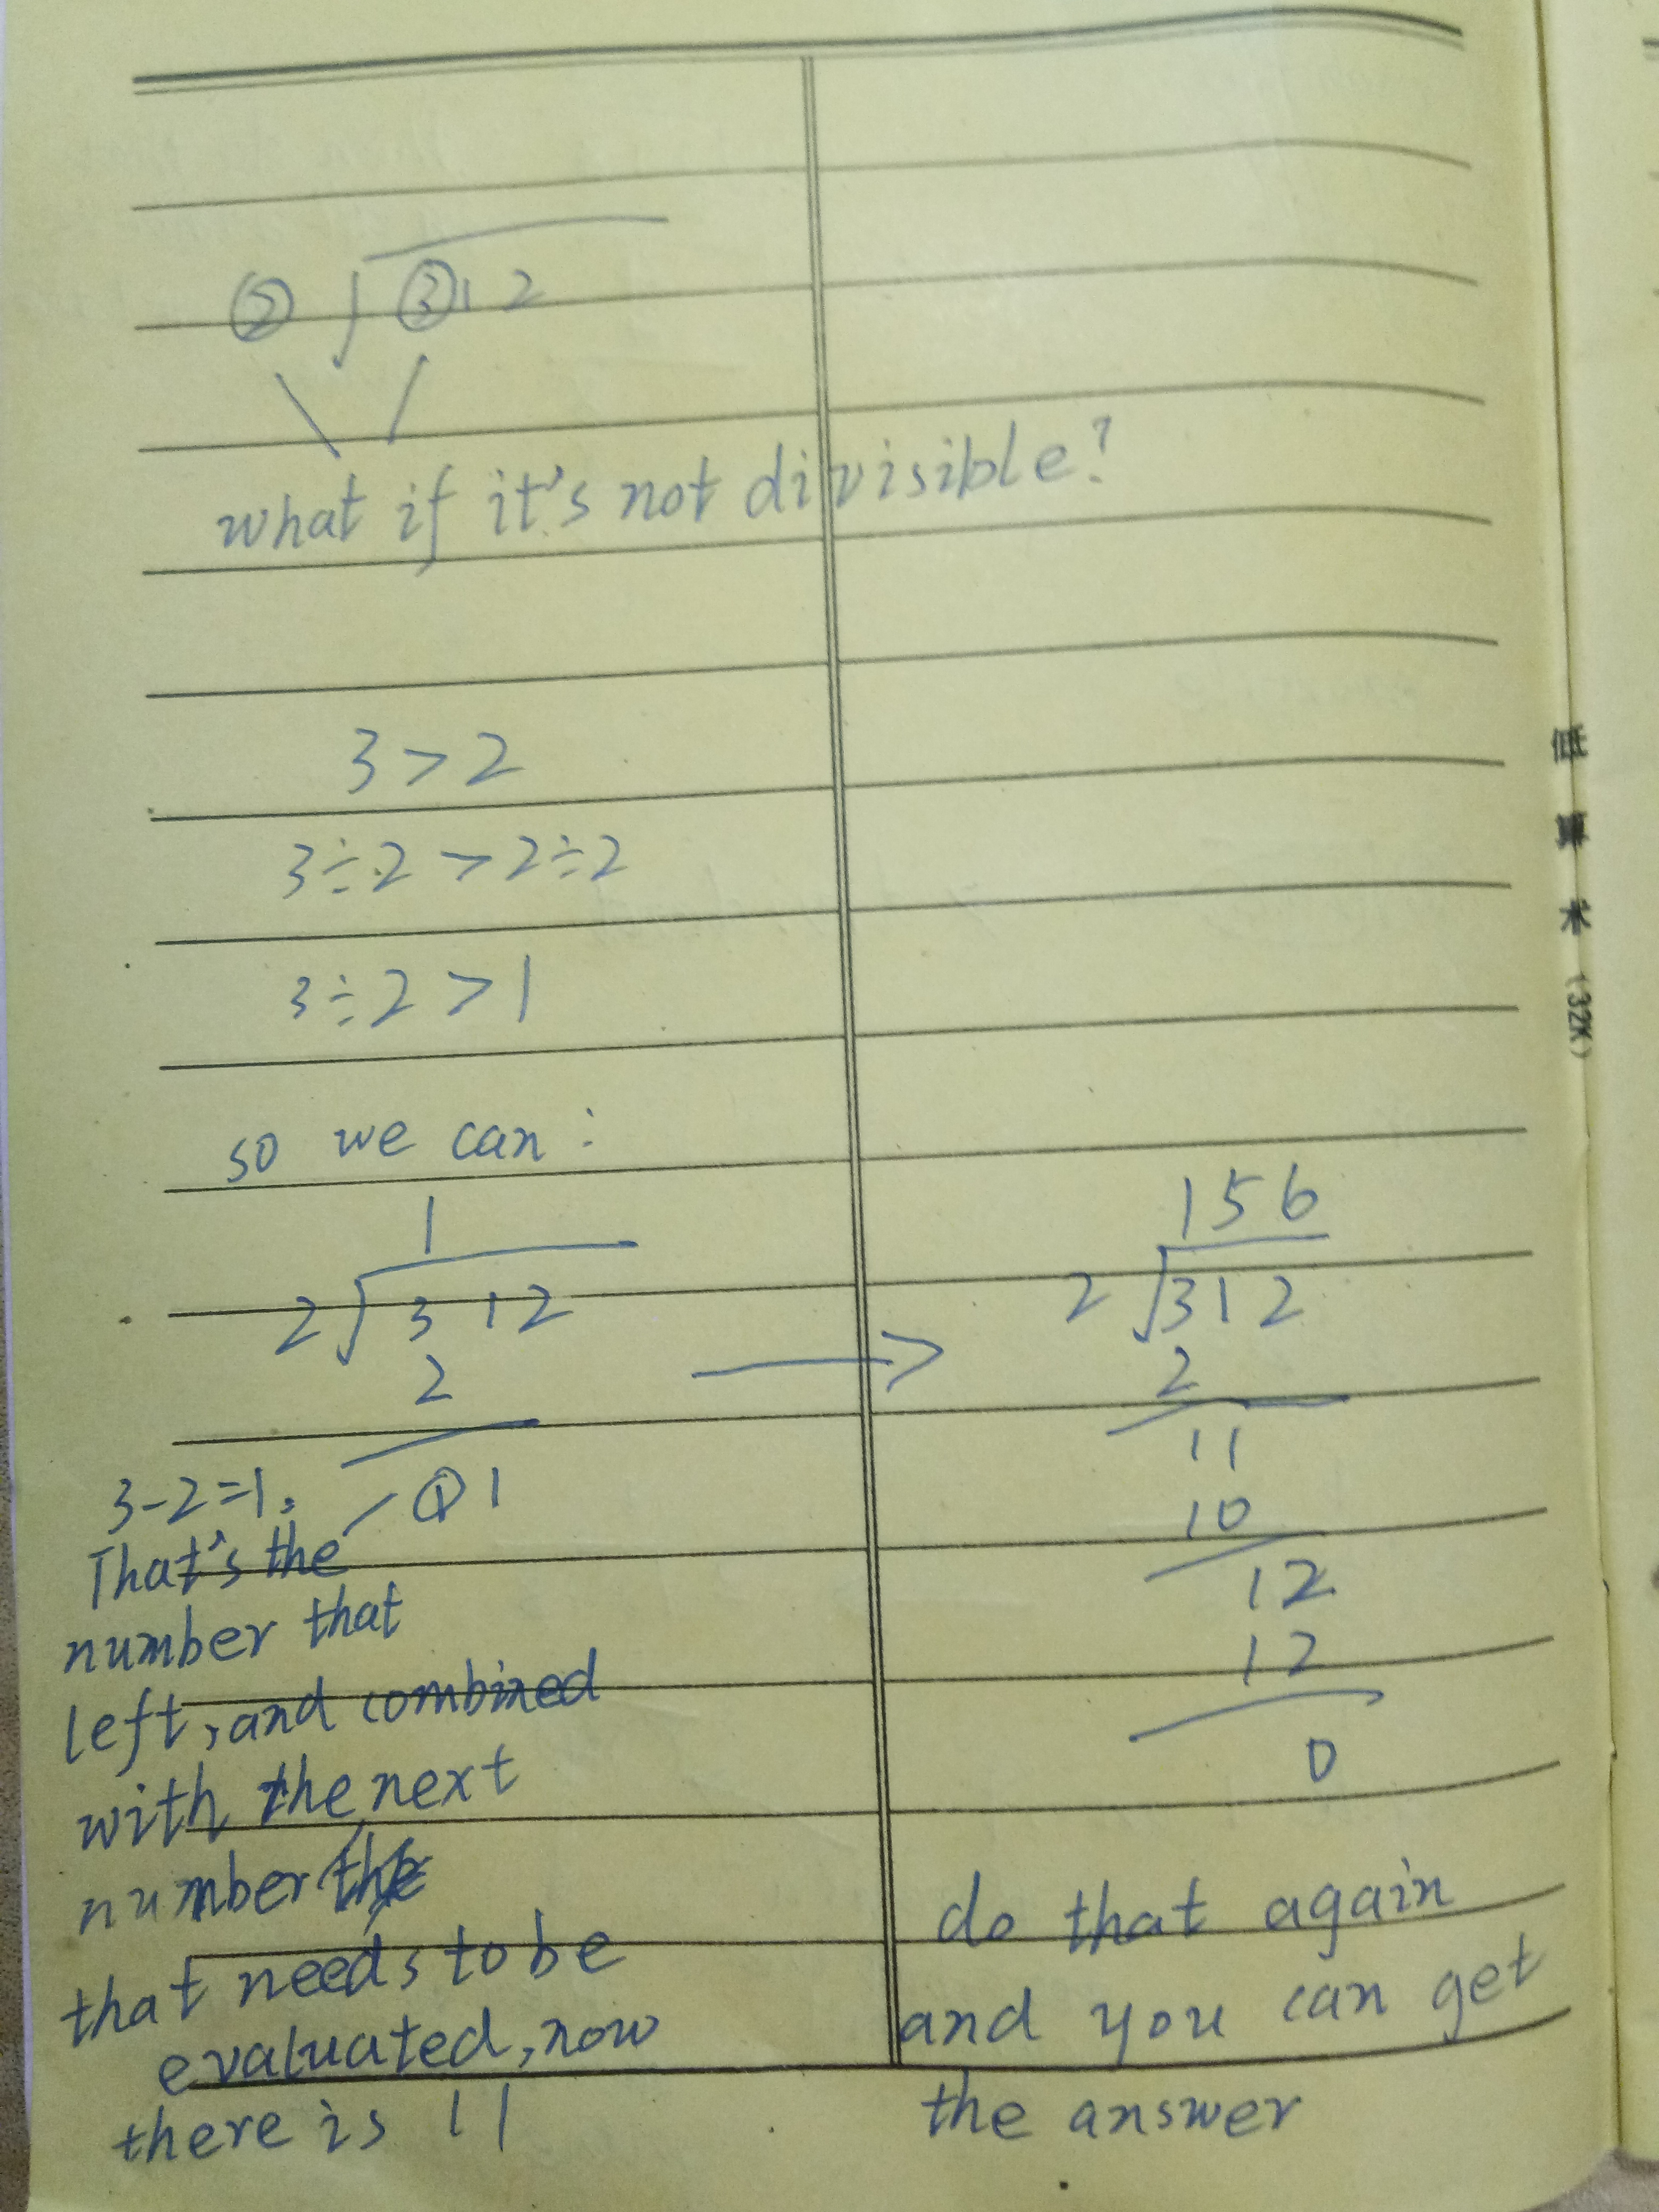 2 ) 3 1 2
what if it's not divisible?
3 > 2
3÷2 > 2÷2
3÷2 > 1
so we can :
1
2 ) 3 1 2
2
1 1
3-2=1,
That's the
number that
left, and combined
with the next
number the
that needs to be
evaluated, now
there is 11
→
156
2 ) 312
2
11
10
12
12
0
do that again
and you can get
the answer
(32K)